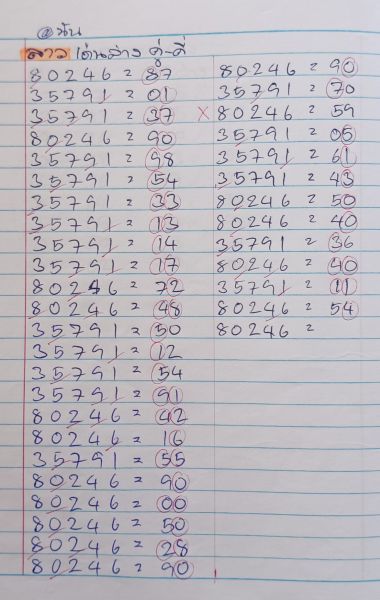 @นัน
ลาว เด่นล่าง คู่-คี่
80246 = 87
35791 = 01
35791 = 37
80246 = 90
35791 = 98
35791 = 54
35791 = 33
35791 = 13
35791 = 14
35791 = 17
80246 = 72
80246 = 48
35791 = 50
35791 = 12
35791 = 54
35791 = 91
80246 = 42
80246 = 16
35791 = 55
80246 = 90
80246 = 00
80246 = 50
80246 = 28
80246 = 90
80246 = 90
35791 = 70
× 80246 = 59
35791 = 05
35791 = 61
35791 = 43
80246 = 50
80246 = 40
35791 = 36
80246 = 40
35791 = 11
80246 = 54
80246 =